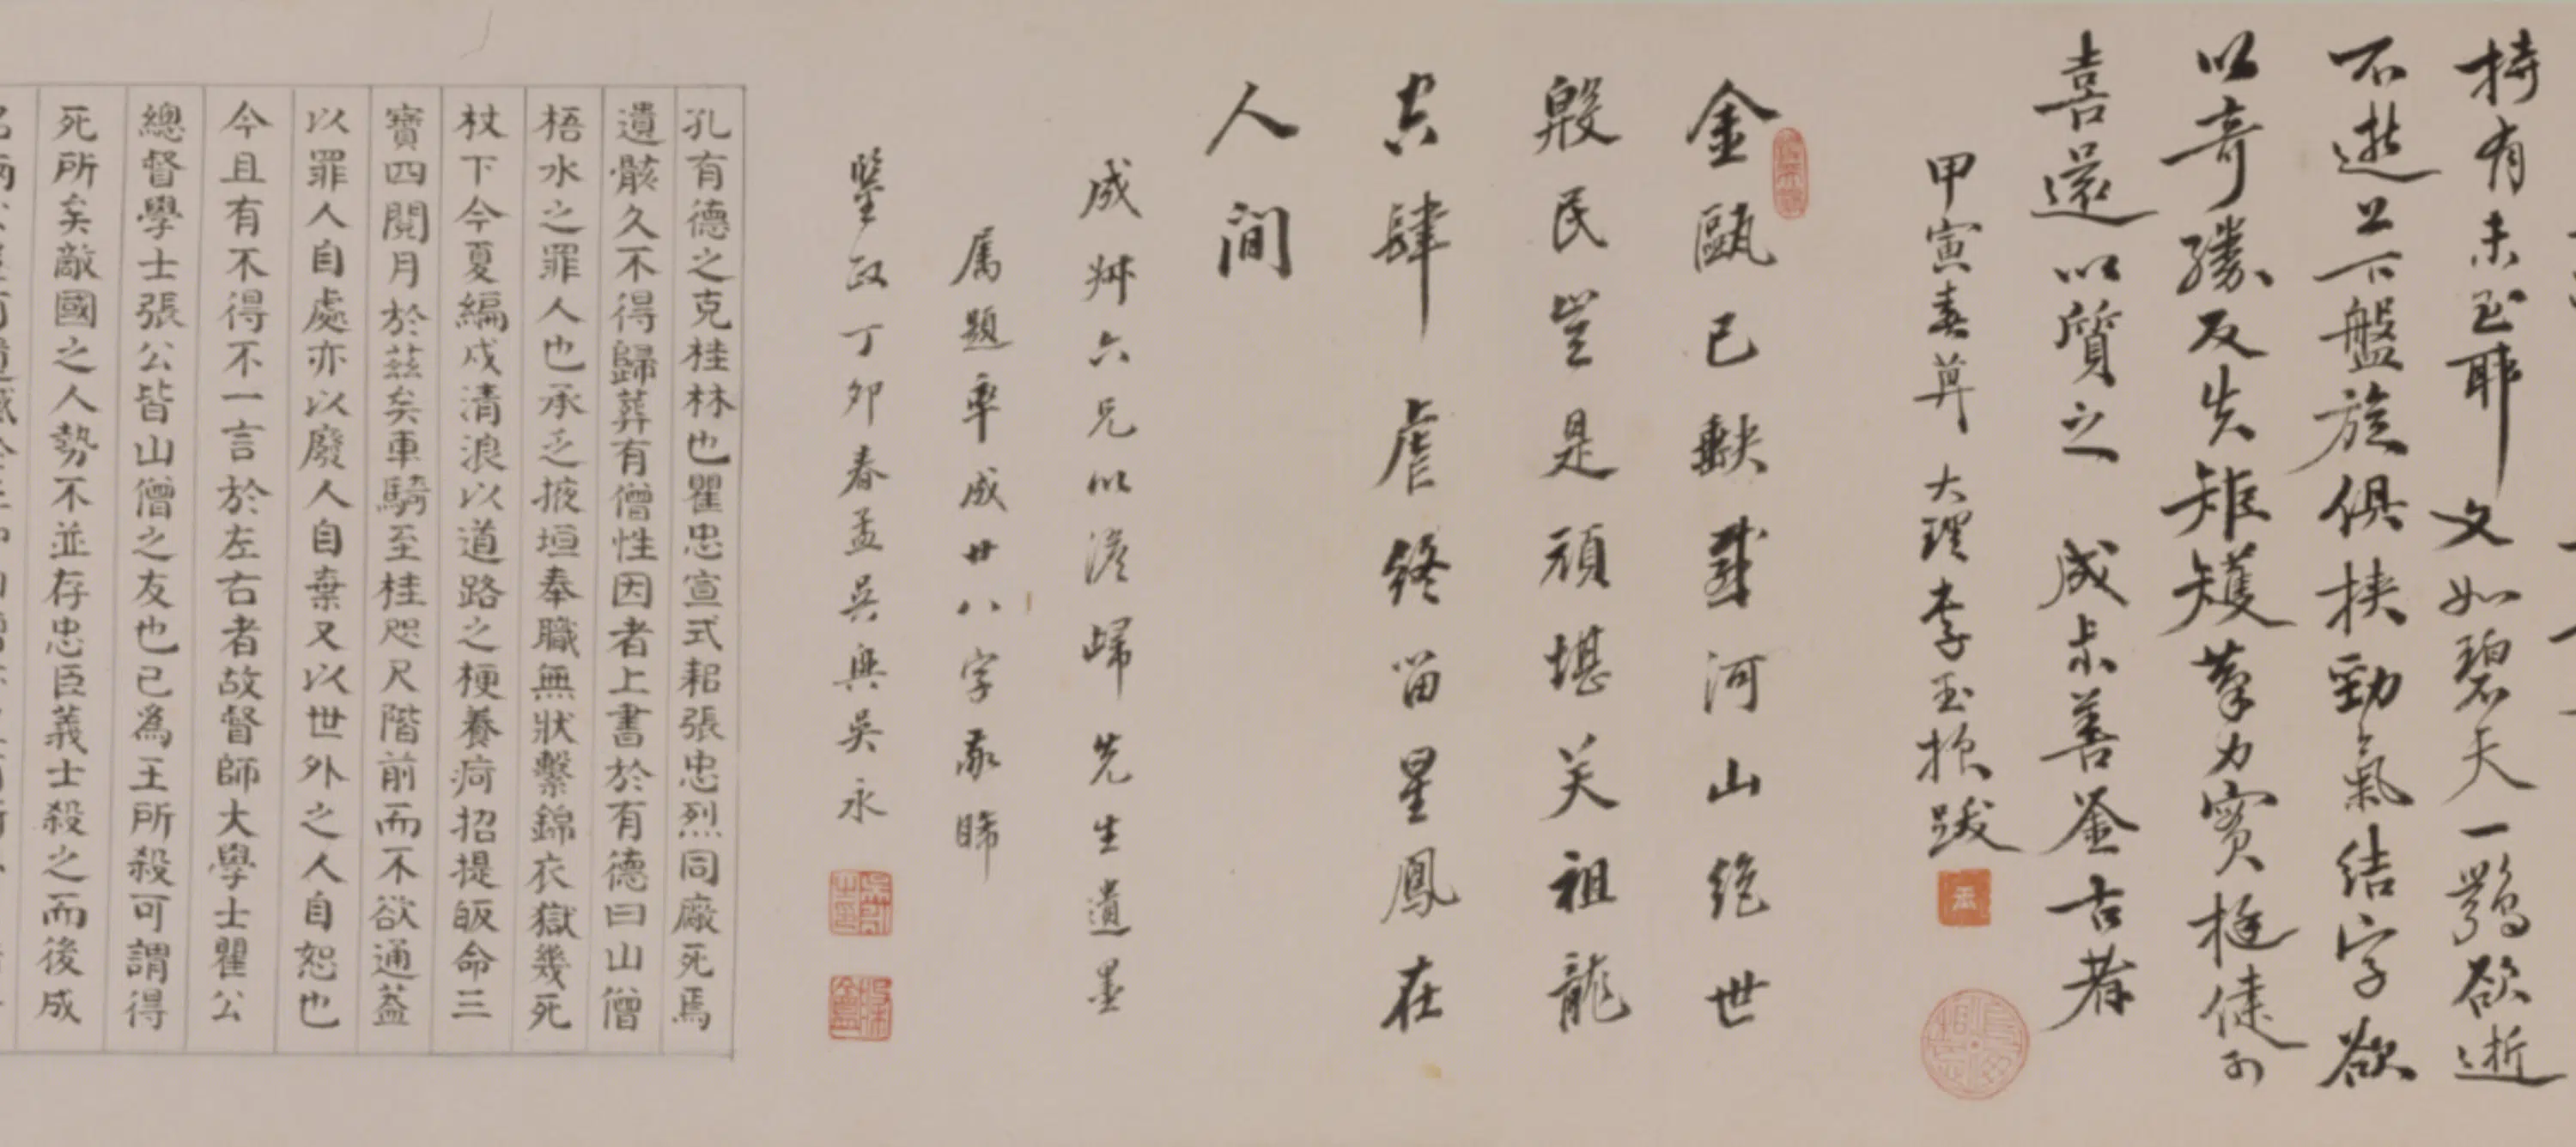 持有未至耶文如碧天一鶚欲逝
不逝上下盤旋俱挾勁氣結字欲
以奇勝反失矩矱蒙力實挺健可
喜還以質之 成叔善鉴古者
甲寅春莫 大理李玉振跋
金甌已缺戴河山絶世
殷民豈是頑堪笑祖龍
空肆虐終留星鳳在
人間
成叔六兄以澹歸先生遺墨
属題率成廿八字敬睎
鑒政丁卯春孟吳興吳永
孔有德之克桂林也瞿忠宣式耜張忠烈同厰死焉
遺骸久不得歸葬有僧性因者上書於有德曰山僧
梧水之罪人也承乏掖垣奉職無狀繫錦衣獄幾死
杖下今夏編戍清浪以道路之梗養疴招提皈命三
寶四閱月於茲矣車騎至桂咫尺階前而不欲通葢
以罪人自處亦以廢人自棄又以世外之人自恕也
今且有不得不一言於左右者故督師大學士瞿公
總督學士張公皆山僧之友也已為王所殺可謂得
死所矣敵國之人勢不並存忠臣義士殺之而後成